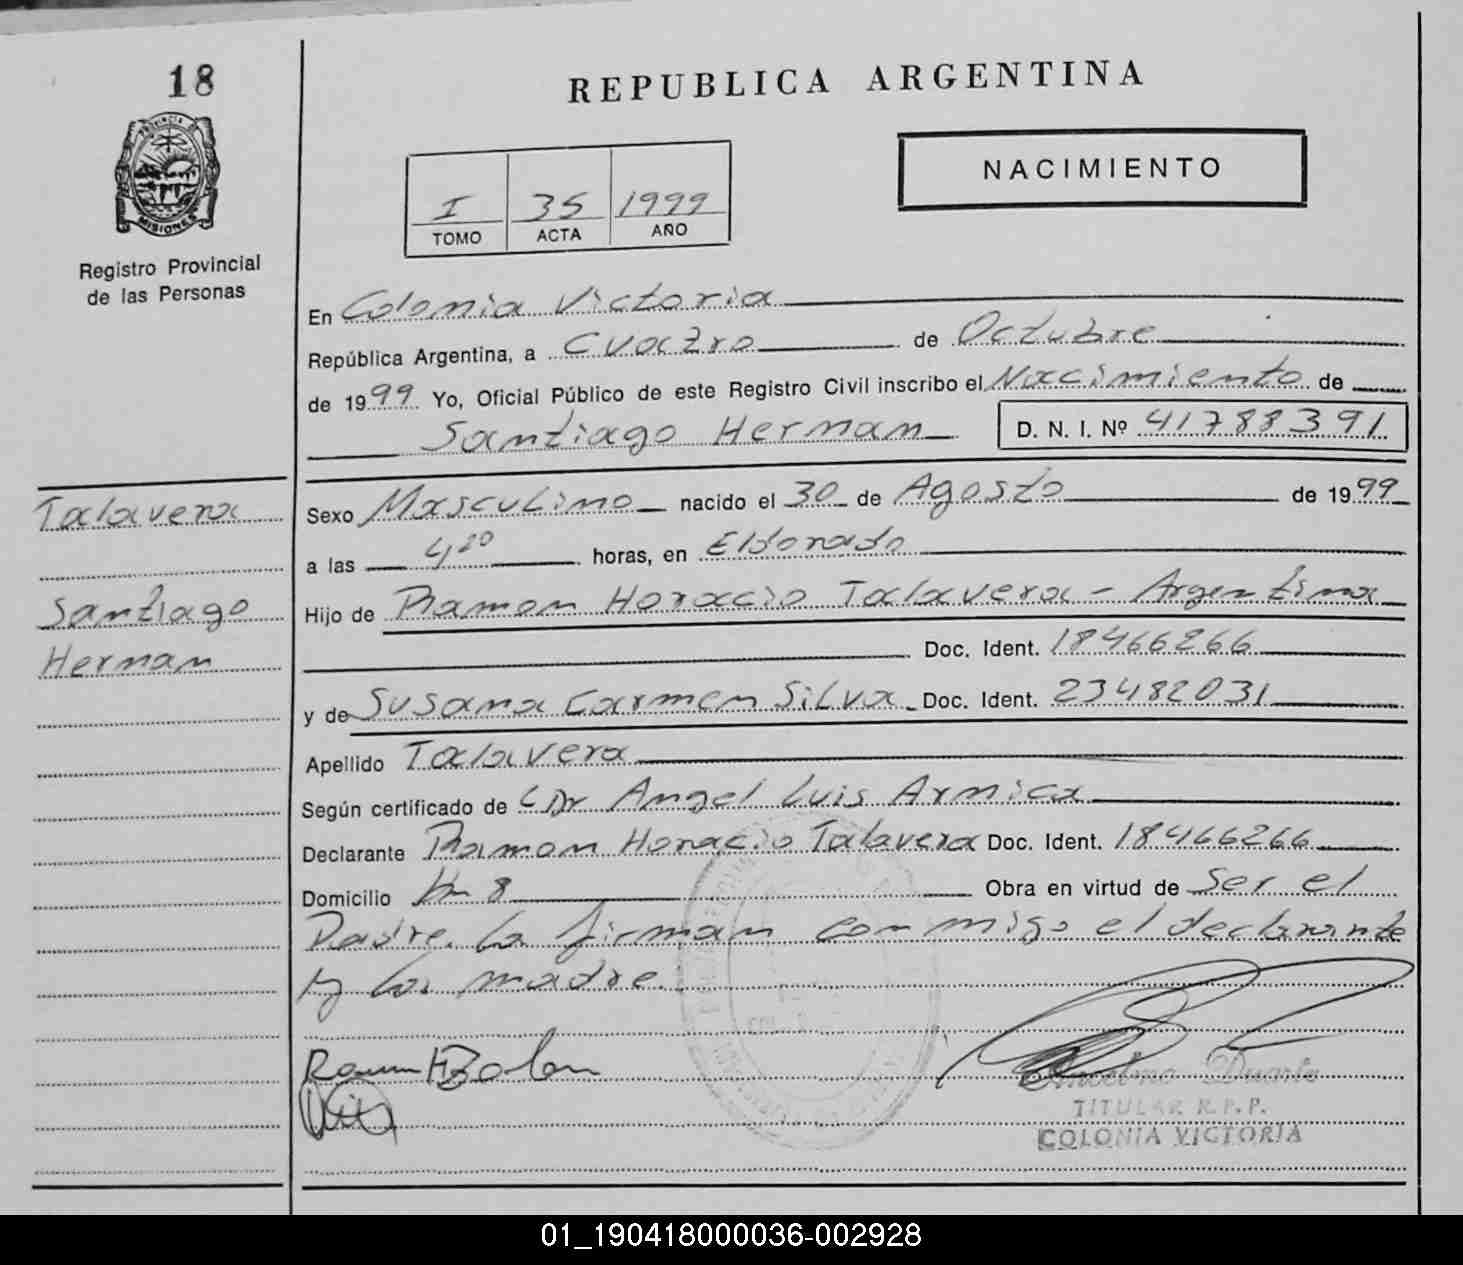 18
REPUBLICA ARGENTINA
PROVINCIA DE
MISIONES
NACIMIENTO
I 35 1999
TOMO ACTA AÑO
Registro Provincial
de las Personas
En Colonia Victoria
República Argentina, a Cuatro de Octubre
de 1999 Yo, Oficial Público de este Registro Civil inscribo el Nacimiento de
Santiago Hernan D. N. I. Nº 41788391
Talavera
Santiago
Hernan
Sexo Masculino nacido el 30 de Agosto de 1999
a las 4,20 horas, en Eldorado
Hijo de Ramon Horacio Talavera - Argentina
Doc. Ident. 18466266
y de Susana Carmen Silva Doc. Ident. 23482031
Apellido Talavera
Según certificado de Dr Angel Luis Arnica
Declarante Ramon Horacio Talavera Doc. Ident. 18466266
Domicilio Km 8 Obra en virtud de Ser el
Padre. La firman conmigo el declarante
y la madre.
Anselmo Duarte
TITULAR R.P.P.
COLONIA VICTORIA
01_190418000036-002928